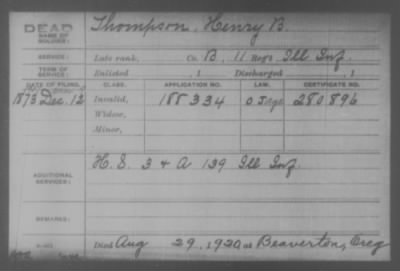 DEAD Thompson, Henry B.
NAME OF SOLDIER:
SERVICE: Late rank, Co. B, 11 Reg't Ill Inf.
TERM OF SERVICE: Enlisted , 1 Discharged , 1
DATE OF FILING. CLASS. APPLICATION NO. LAW. CERTIFICATE NO.
1873 Dec. 12 Invalid, 188334 280896
Widow,
Minor,
ADDITIONAL SERVICES: H. S. 3 & A 139 Ill Inf.
REMARKS:
Died Aug 29, 1920 at Beaverton, Oreg